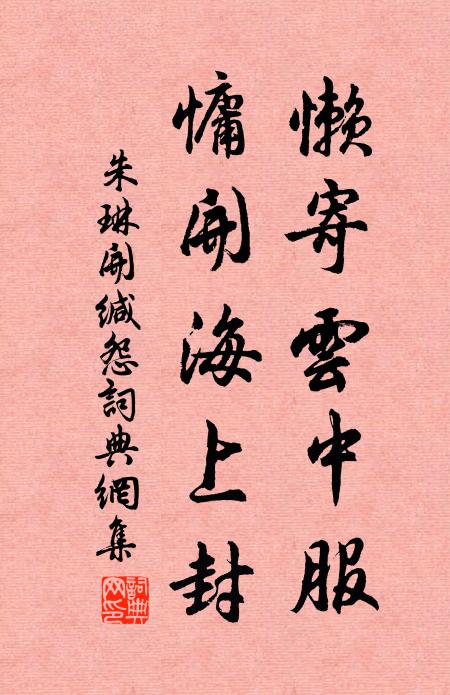 懶寄雲中服
慵開海上封
朱琳開緘怨詞典網集
詞典網印